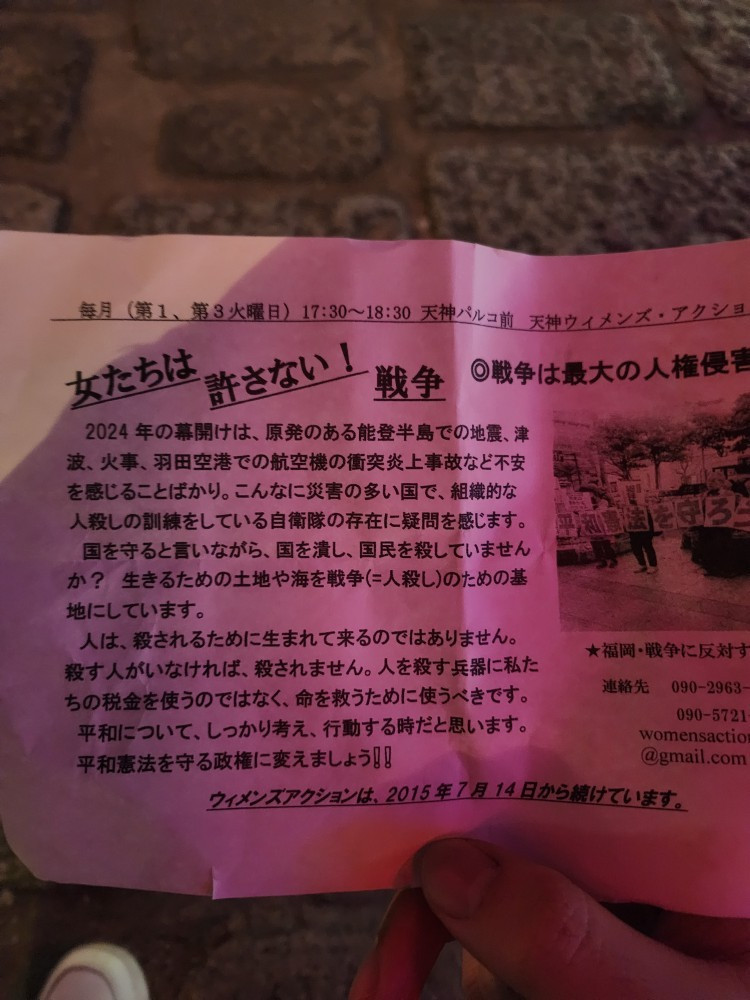 毎月（第１、第３火曜日）17:30～18:30 天神パルコ前 天神ウィメンズ・アクショ
女たちは 許さない！ 戦争
◎戦争は最大の人権侵害
2024年の幕開けは、原発のある能登半島での地震、津
波、火事、羽田空港での航空機の衝突炎上事故など不安
を感じることばかり。こんなに災害の多い国で、組織的な
人殺しの訓練をしている自衛隊の存在に疑問を感じます。
国を守ると言いながら、国を潰し、国民を殺していません
か？ 生きるための土地や海を戦争(=人殺し)のための基
地にしています。
人は、殺されるために生まれて来るのではありません。
殺す人がいなければ、殺されません。人を殺す兵器に私た
ちの税金を使うのではなく、命を救うために使うべきです。
平和について、しっかり考え、行動する時だと思います。
平和憲法を守る政権に変えましょう!!
ウィメンズアクションは、2015年7月14日から続けています。
平和憲法を守ろう
★福岡・戦争に反対す
連絡先 090-2963-
090-5721
womensaction
@gmail.com